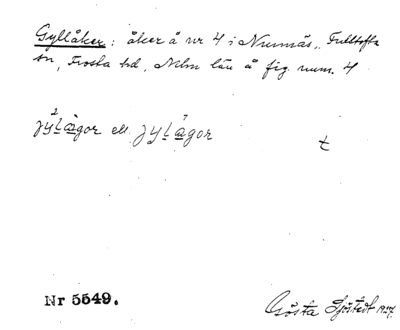 Gyllåker: åker å nr 4 i Nunnäs, Fulltofta
sn, Frosta hd, Mlm län å fig. num. 4
t
Nr 5549.
Gösta Sjöstedt 1927.